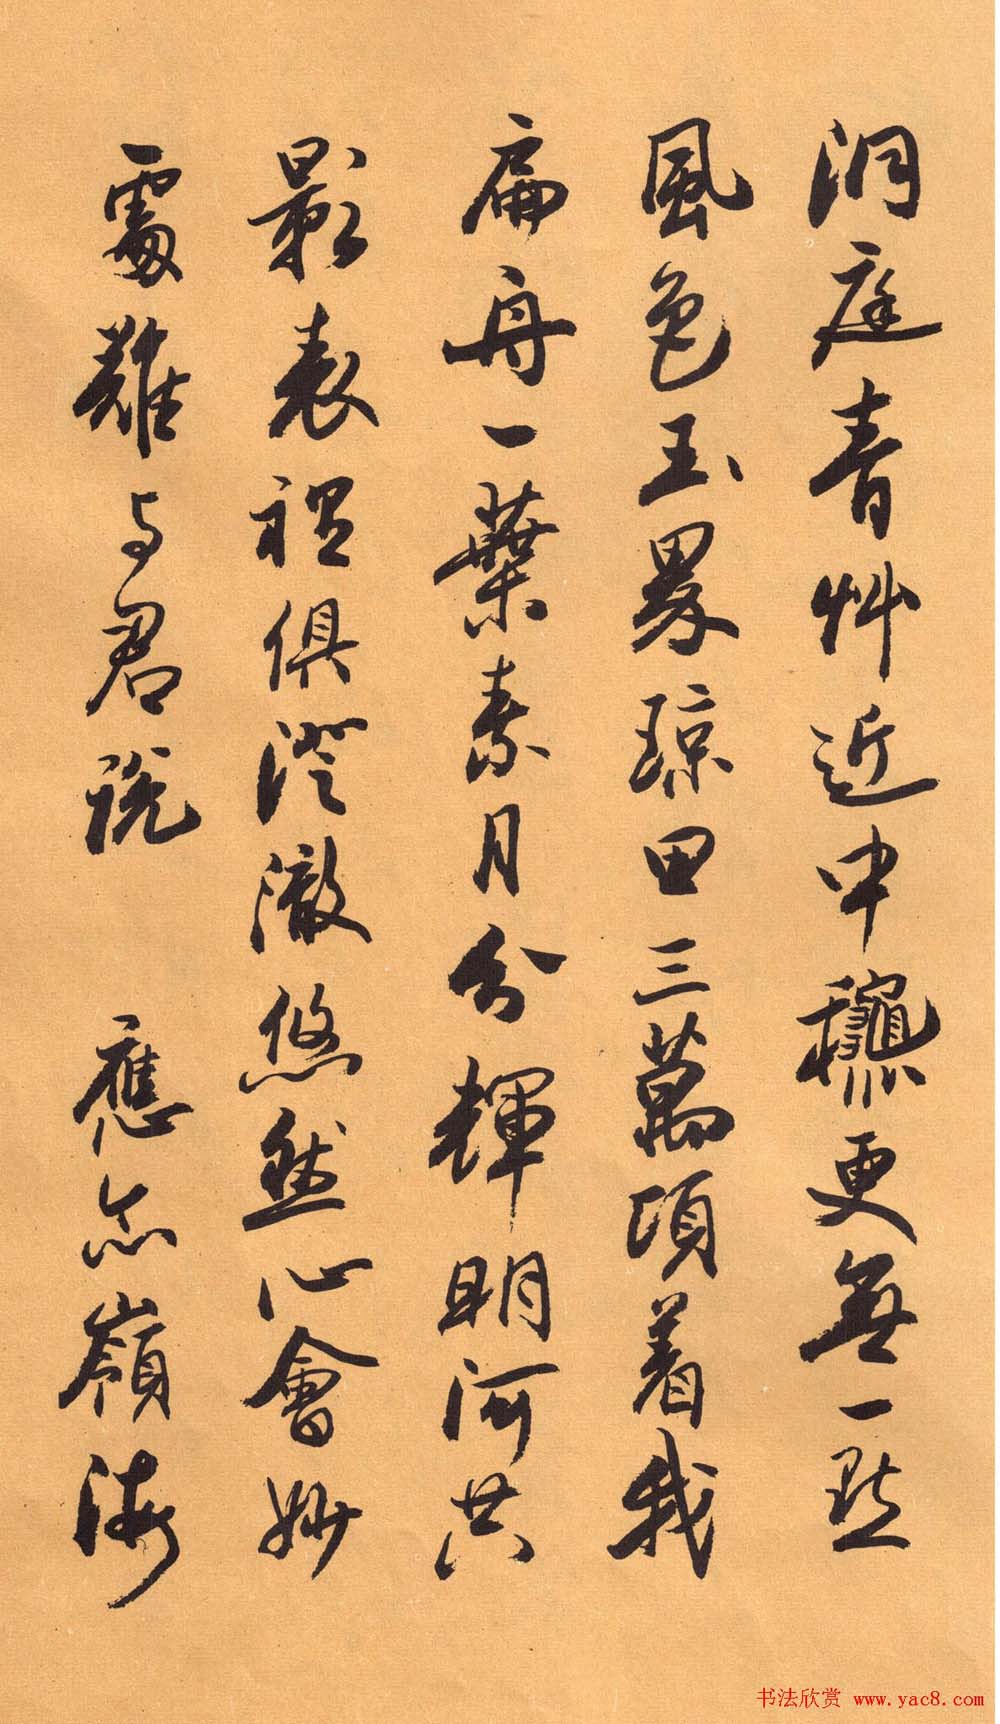 洞庭青艸近中龝更無一點
風色玉界瓊田三萬頃着我
扁舟一葉素月分輝明河共
影表裡俱澄澈悠然心會妙
處難与君説 應念嶺海
书法欣赏 www.yac8.com